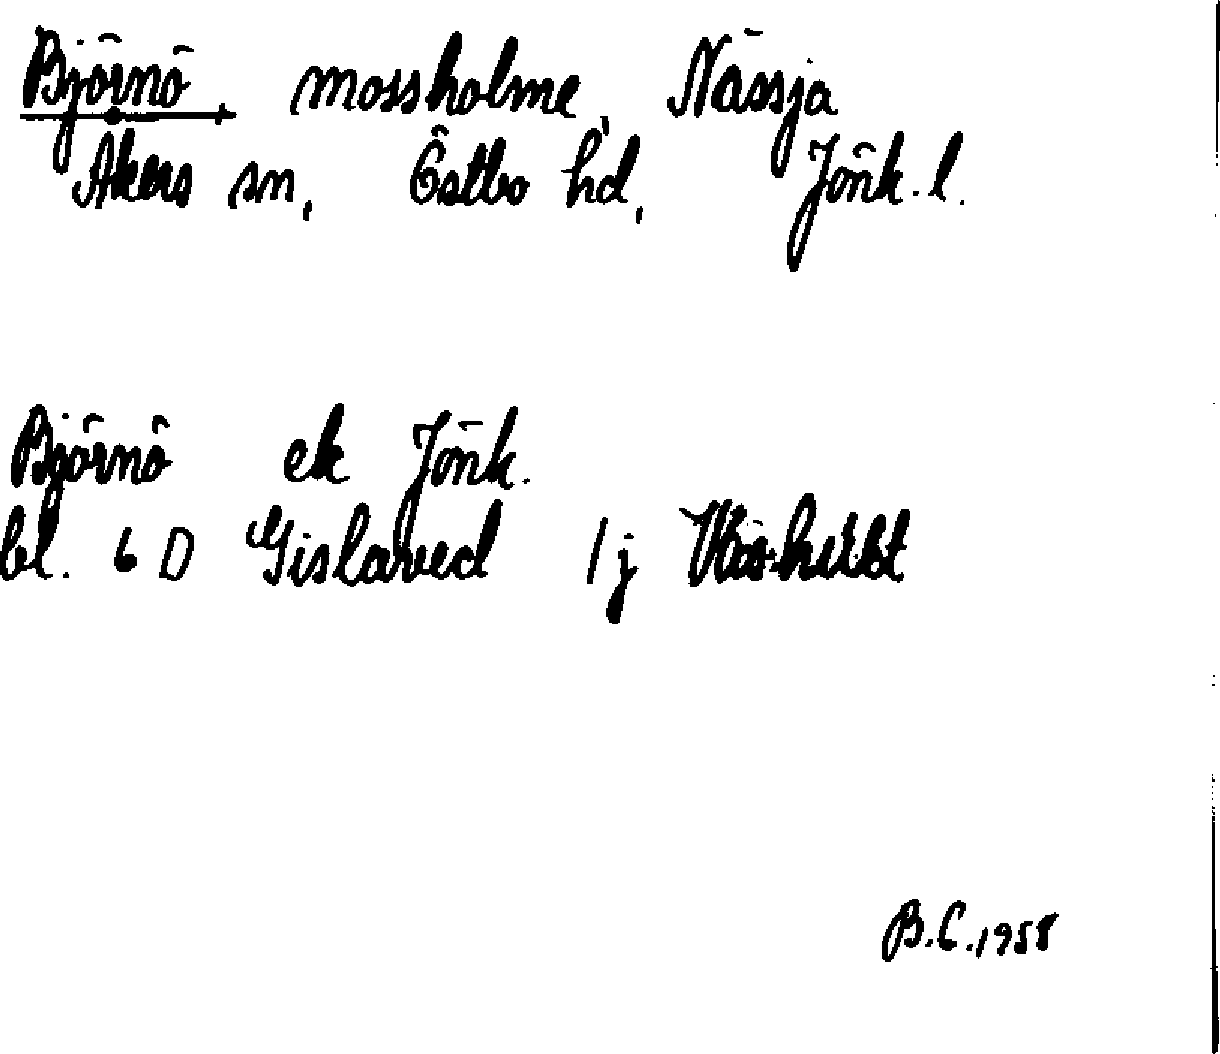 Björnö, mossholme, Nässja
Åkers sn, Östbo hd, Jönk. l.
Björnö ek Jönk.
bl. 6 D Gislaved 1j
B.C. 1958